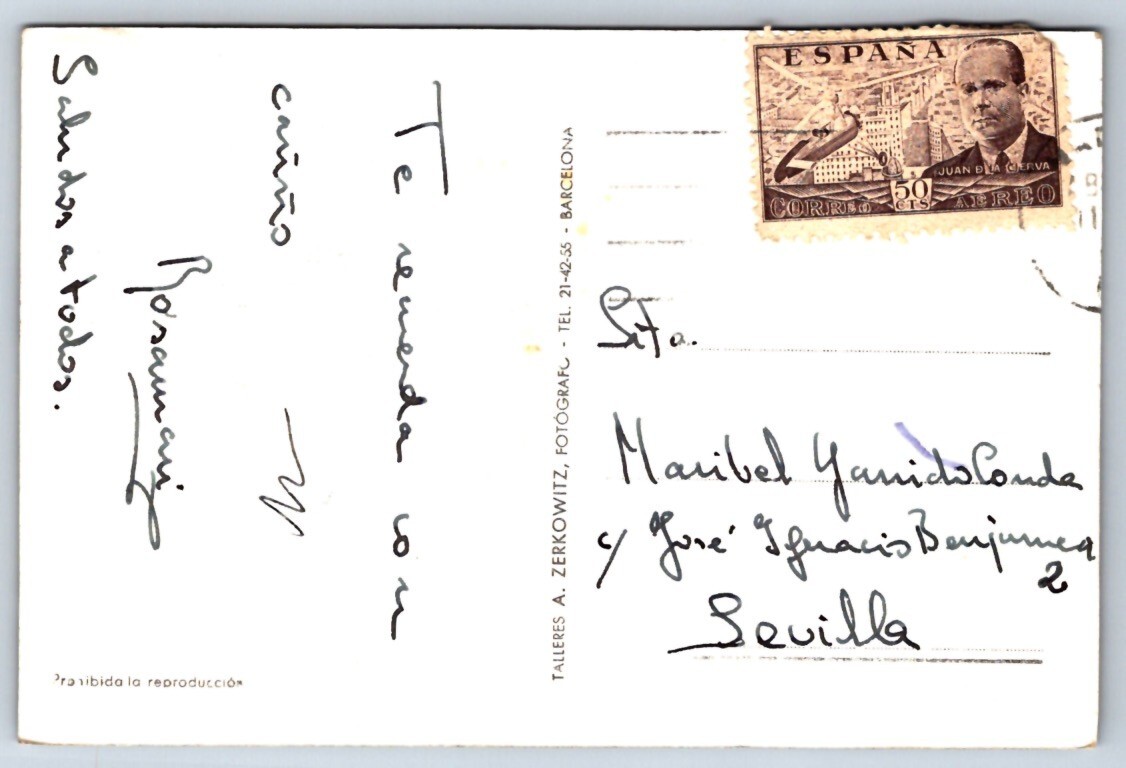 Te recuerda con
cariño
Rosamari
Saludos a todos.
Prohibida la reproducción
TALLERES A. ZERKOWITZ, FOTÓGRAFO - TEL. 21-42-55 - BARCELONA
ESPAÑA
JUAN DE LA CIERVA
50
CTS
CORREO AEREO
Srta.
Maribel Garrido Conda
c/ José Ignacio Benjumea
2
Sevilla